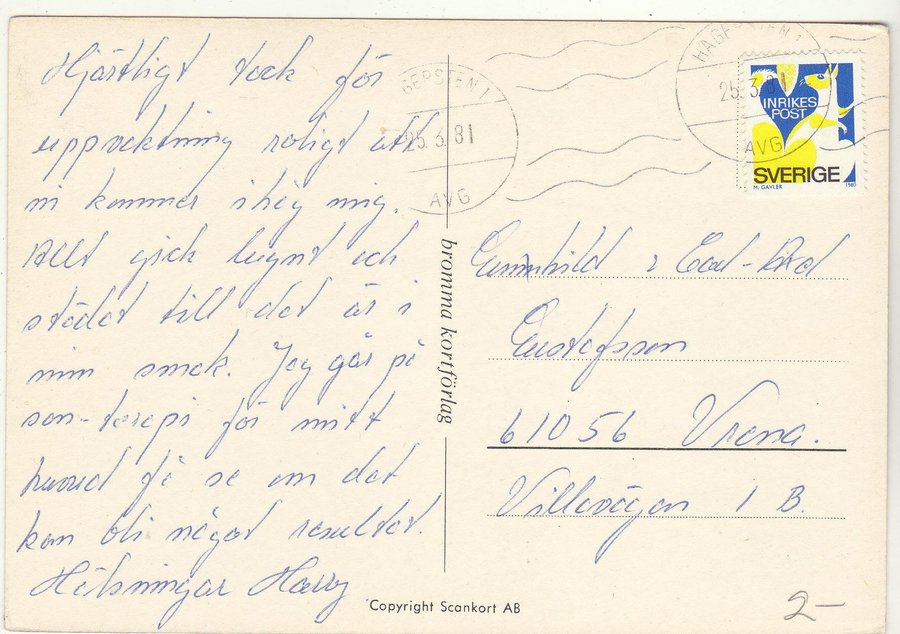 Hjärtligt tack för
uppvaktning roligt att
ni kommer ihåg mig.
Allt gick lugnt och
stödet till det är i
min smak. Jag går på
son-terapi för mitt
huvud få se om det
kan bli något resultat.
Hälsningar Harry
GERSTEN 1
25.3.81
AVG
HÄGERSTEN 1
25.3.81
AVG
INRIKES
POST
SVERIGE
M. GAVLER 1980
bromma kortförlag
Gunnhild o Carl-
Gustafsson
61056 Vrena.
Villavägen 1 B.
Copyright Scankort AB
2-